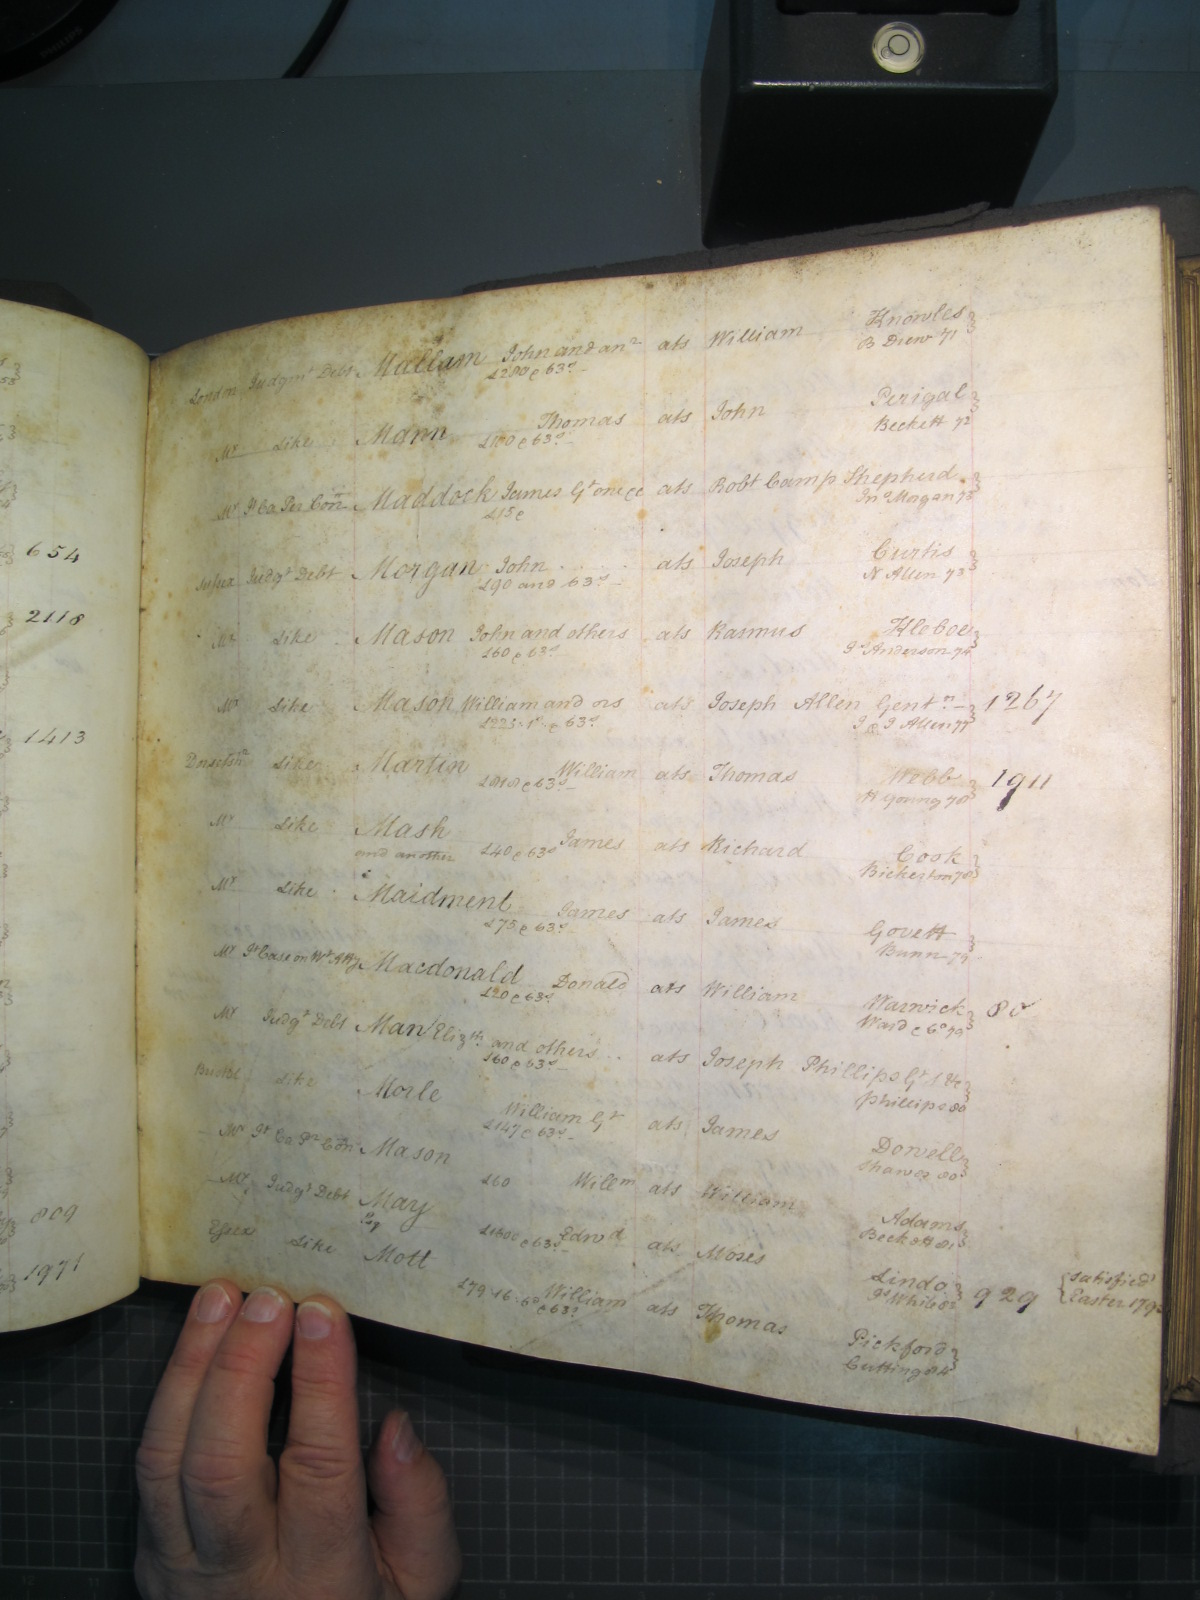 London Judgmt Debt Mallam John and anr ats William Knowles
£280 & 63s B Drew 71
Mx Like Mann Thomas ats John Perigal
£100 & 63s Beckett 72
Mx Maddock James Gt one &c ats Robt Camp Shepherd
£15 Jno Morgan 73
Sussex Judgt Debt Morgan John ats Joseph Curtis
£90 and 63s N Allen 73
Mx Like Mason John and others ats Rasmus Kleboe
£60 & 63s Js Anderson 74
Mx Like Mason William and ors ats Joseph Allen Gentn 1267
£225 & 63s J & J Allen 77
Dorsetsh Like Martin William ats Thomas Webb 1911
& 63s H Young 78
Mx Like Mash James ats Richard Cook
and another £40 & 63s Bickerton 78
Mx Like Maidment James ats James Govett
£75 & 63s Bunn 79
Mx Pt Case on Wt Atty Macdonald Donald ats William Warwick 80
£20 & 63s Ward & Co 79
Mx Judgt Debt Man Elizth and others ats Joseph Phillips Gt &c
£60 & 63s Phillips 80
Bristol Like Morle William Gt ats James Dowell
£147 & 63s Shawes 80
Mx Mason Willm ats William Adams
£60 Beckett 81
Mx Judgt Debt May Edwd ats Moses Lindo 929 Satisfied
Esqr & 63s Easter 179
Essex Like Mott William ats Thomas Pickford
£79 16 6 & 63s Cutting 84
654
2118
1413
809
1971
PHILIPS
12 11